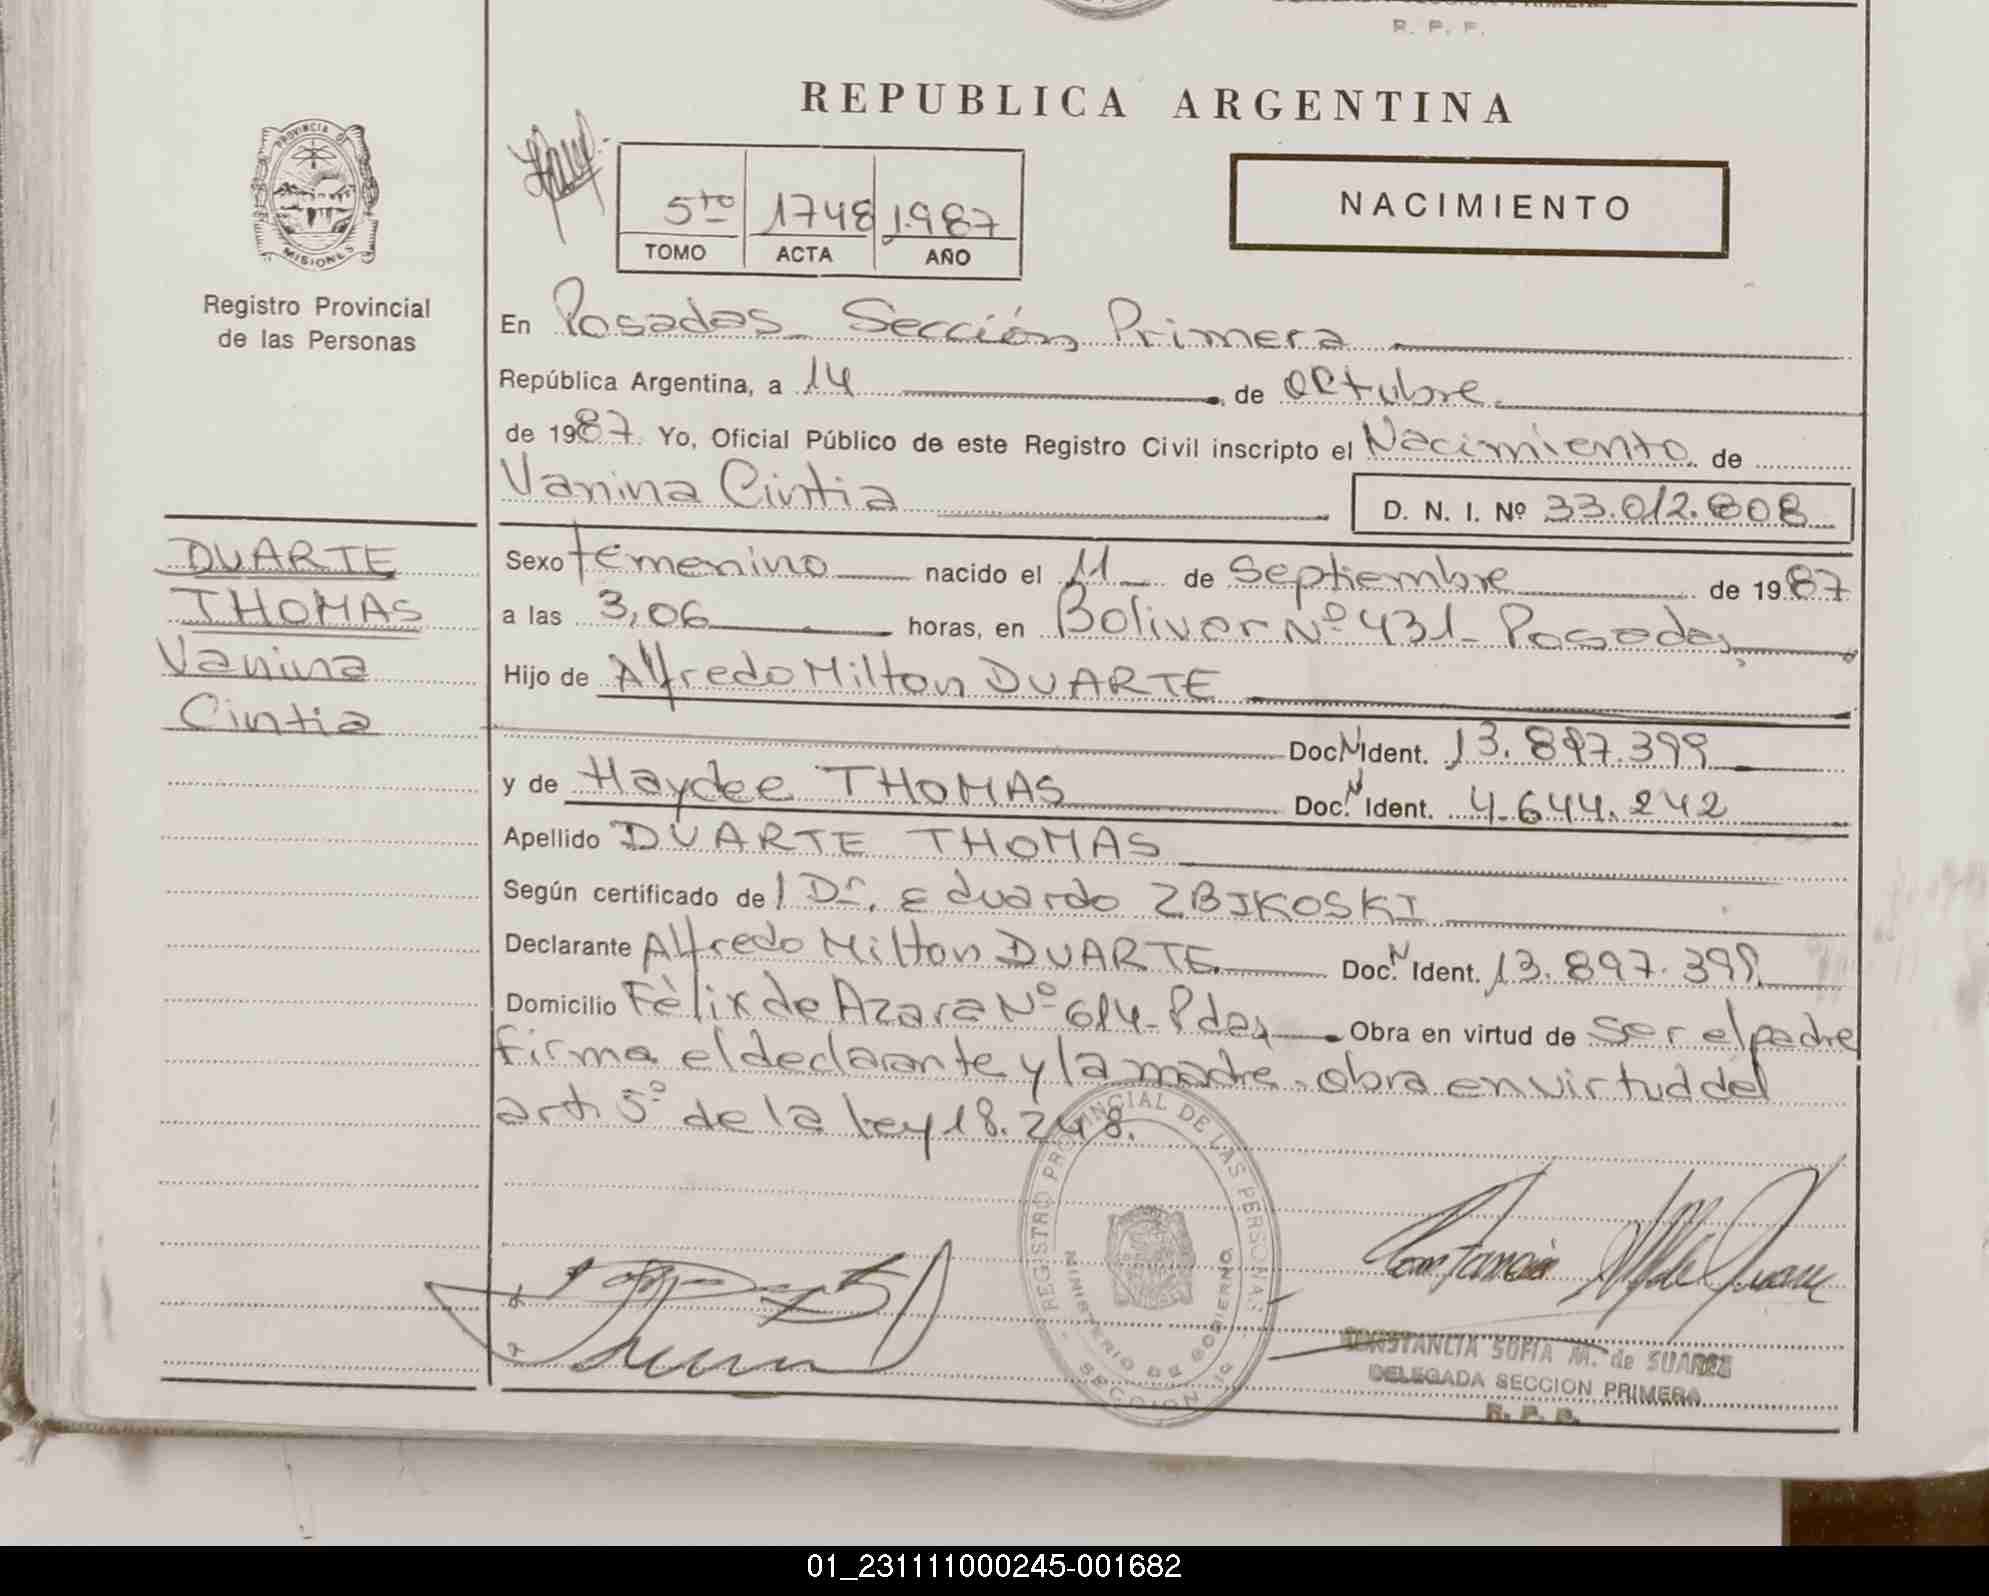 R. P. P.
REPUBLICA ARGENTINA
PROVINCIA DE
MISIONES
Registro Provincial
de las Personas
5to 1748 1.987
TOMO ACTA AÑO
NACIMIENTO
En Posadas Sección Primera
República Argentina, a 14 de Octubre
de 1987. Yo, Oficial Público de este Registro Civil inscripto el Nacimiento de
Vanina Cintia
D. N. I. Nº 33.012.808
DUARTE
THOMAS
Vanina
Cintia
Sexo femenino nacido el 11 de Septiembre de 1987
a las 3,06 horas, en Bolivar Nº 431- Posadas
Hijo de Alfredo Milton DUARTE
Doc. N Ident. 13.897.399
y de Haydee THOMAS Doc. N Ident. 4.644.242
Apellido DUARTE THOMAS
Según certificado de l Dr. Eduardo ZBIKOSKI
Declarante Alfredo Milton DUARTE Doc. N Ident. 13.897.399
Domicilio Fèlix de Azara Nº 614- Pdas Obra en virtud de ser el padre
firma el declarante y la madre. obra en virtud del
art. 5º de la ley 18.248.
REGISTRO PROVINCIAL DE LAS PERSONAS
MINISTERIO DE GOBIERNO
SECCION 1a
CONSTANCIA SOFIA M. de SUAREZ
DELEGADA SECCION PRIMERA
R. P. P.
01_231111000245-001682